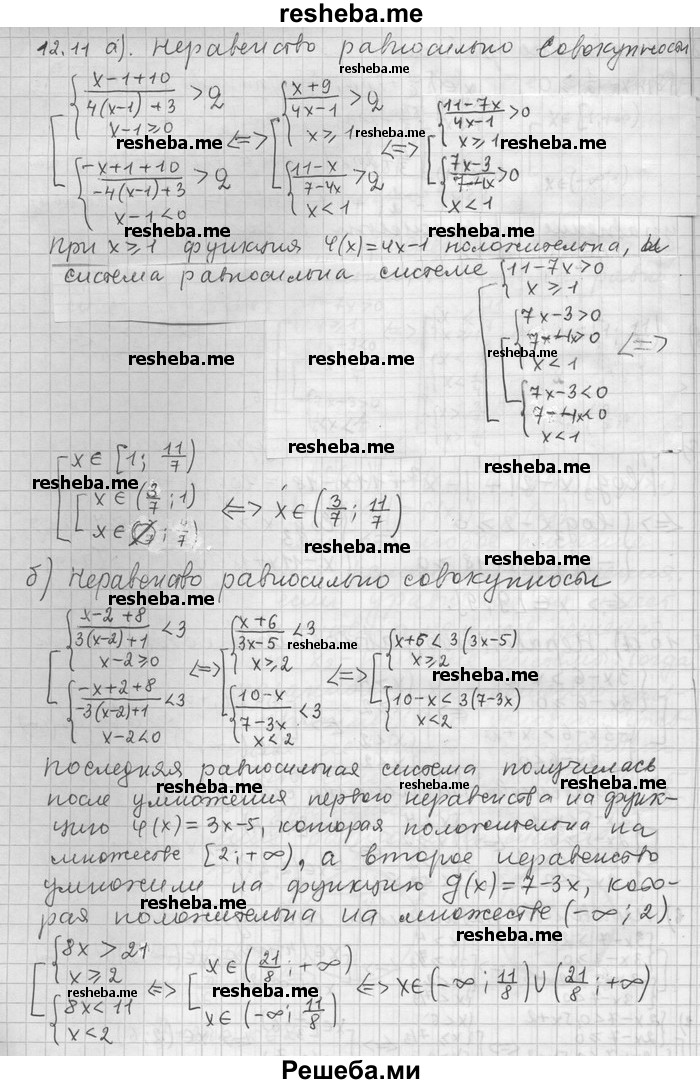 resheba.me
12.11 а). Неравенство равносильно совокупности
{ (x-1+10)/(4(x-1)+3) > 2
x-1≥0
{ (-x+1+10)/(-4(x-1)+3) > 2
x-1<0
<=>
{ (x+9)/(4x-1) > 2
x≥1
{ (11-x)/(7-4x) > 2
x<1
<=>
{ (11-7x)/(4x-1) > 0
x≥1
{ (7x-3)/(7-4x) > 0
x<1
При x≥1 функция φ(x)=4x-1 положительна,
система равносильна системе { 11-7x>0
x≥1
{ 7x-3>0
7-4x>0
x<1
<=>
{ 7x-3<0
7-4x<0
x<1
[ x∈[1; 11/7)
[ x∈(3/7; 1)
x∈
<=> x∈(3/7; 11/7)
б) Неравенство равносильно совокупности
{ (x-2+8)/(3(x-2)+1) <3
x-2≥0
{ (-x+2+8)/(-3(x-2)+1) <3
x-2<0
<=>
{ (x+6)/(3x-5) <3
x≥2
{ (10-x)/(7-3x) <3
x<2
<=>
{ x+6<3(3x-5)
x≥2
{ 10-x<3(7-3x)
x<2
Последняя равносильная система получилась
после умножения первого неравенства на функ-
цию φ(x)=3x-5, которая положительна на
множестве [2;+∞), а второе неравенство
умножили на функцию g(x)=7-3x, кото-
рая положительна на множестве (-∞; 2).
{ 8x>21
x≥2
{ 8x<11
x<2
<=>
[ x∈(21/8; +∞)
x∈(-∞; 11/8)
<=> x∈(-∞; 11/8)∪(21/8; +∞)
Решеба.ми